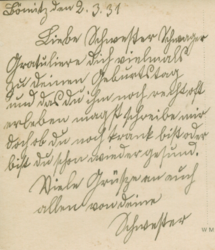 Bömitz den 2.3.31
Liebe Schwester Schwager
Gratuliere dich vielmals
zu deinen Geburtstag
und das du ihn noch recht oft
erleben magst schreibe mir
doch ob du noch krank bist oder
bist du schon wieder gesund.
Viele Grüße an euch
allen von deine
Schwester
W M